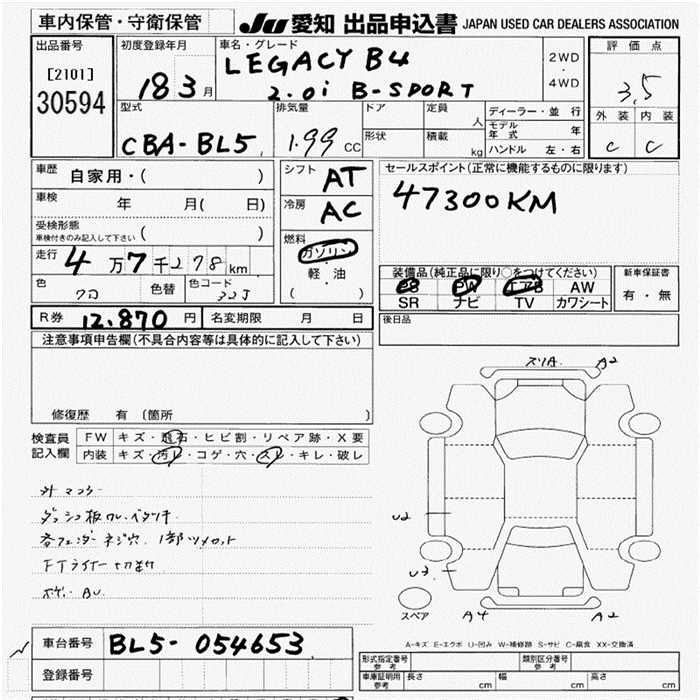 車内保管・守衛保管
JU 愛知 出品申込書 JAPAN USED CAR DEALERS ASSOCIATION
出品番号
[2101]
30594
初度登録年月
18 3 月
車名・グレード
LEGACY B4
2.0i B-SPORT
2WD
・
4WD
評価点
3.5
外装 内装
C C
型式
CBA-BL5
排気量
1.99 CC
ドア
定員
人
形状
積載
kg
ディーラー・並行
モデル年式 年
ハンドル 左・右
車歴
自家用・( )
車検
年 月( 日)
受検形態
車検付きのみ記入して下さい ( )
走行
4万7千278km
色
クロ
色替
色コード
32J
シフト
AT
冷房
AC
燃料
ガソリン
・
軽・油
( )
セールスポイント(正常に機能するものに限ります)
47300KM
装備品(純正品に限り○をつけてください)
PS PW エアB AW
SR ナビ TV カワシート
新車保証書
有・無
R券 12.870 円
名変期限 月 日
後日品
注意事項申告欄(不具合内容等は具体的に記入して下さい)
修復歴 有 (箇所 )
検査員
記入欄
FW キズ・飛石・ヒビ割・リペア跡・X要
内装 キズ・汚レ・コゲ・穴・スレ・キレ・破レ
外マフラー
ダッシュ板ワレ・ベタツキ
各フェンダーネジ穴 1部ツメカット
FTライナー切加工
ボディAU
スリA
A2
U2
U3
スペア
A4
A2
A-キズ E-エクボ U-凹み W-補修跡 S-サビ C-腐食 XX-交換済
車台番号 BL5-054653
登録番号
形式指定番号
参考
類別区分番号
参考
車庫証明用
参考
長さ cm
幅 cm
高さ cm